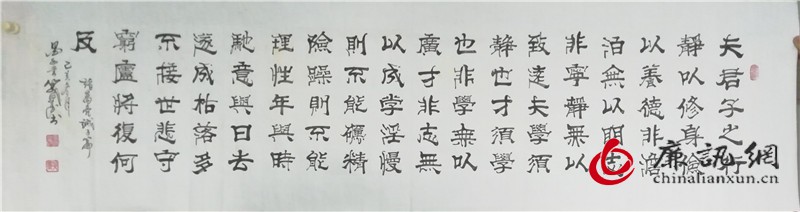 夫君子之行
靜以修身儉
以養德非澹
泊無以明志
非寧靜無以
致遠夫學須
靜也才須學
也非學無以
廣才非志無
以成學淫慢
則不能礪精
險躁則不能
理性年與時
馳意與日去
遂成枯落多
不接世悲守
窮廬將復何
反
諸葛亮誡子篇
廉訊網
chinalianxun.cn